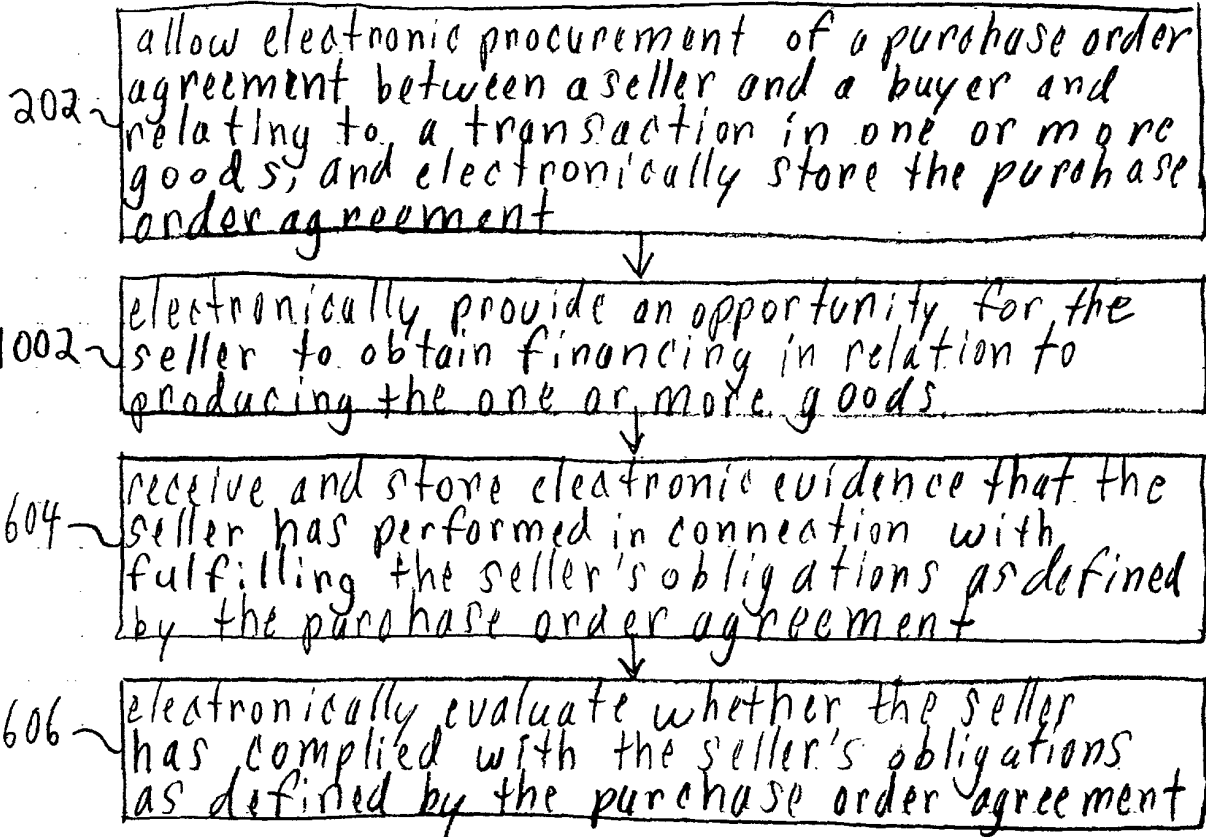 allow electronic procurement of a purchase order
202 agreement between a seller and a buyer and
relating to a transaction in one or more
goods, and electronically store the purchase
order agreement
electronically provide an opportunity for the
1002 seller to obtain financing in relation to
producing the one or more goods
receive and store electronic evidence that the
604 seller has performed in connection with
fulfilling the seller's obligations as defined
by the purchase order agreement
electronically evaluate whether the seller
606 has complied with the seller's obligations
as defined by the purchase order agreement